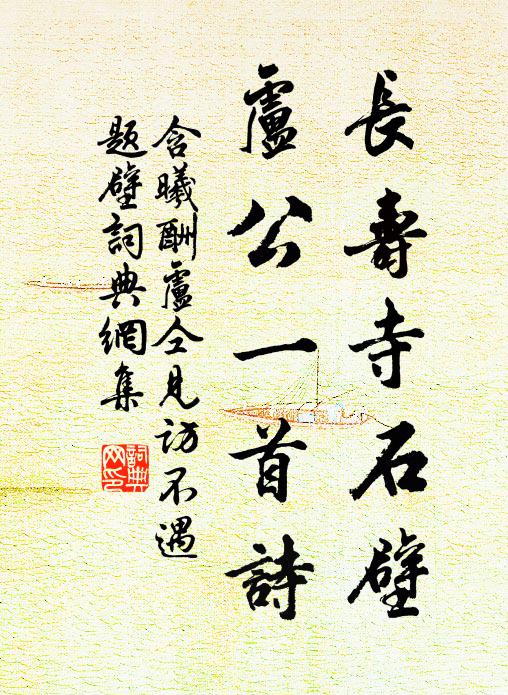 長壽寺石壁
盧公一首詩
含曦酬盧仝見訪不遇
題壁詞典網集
詞典
网印